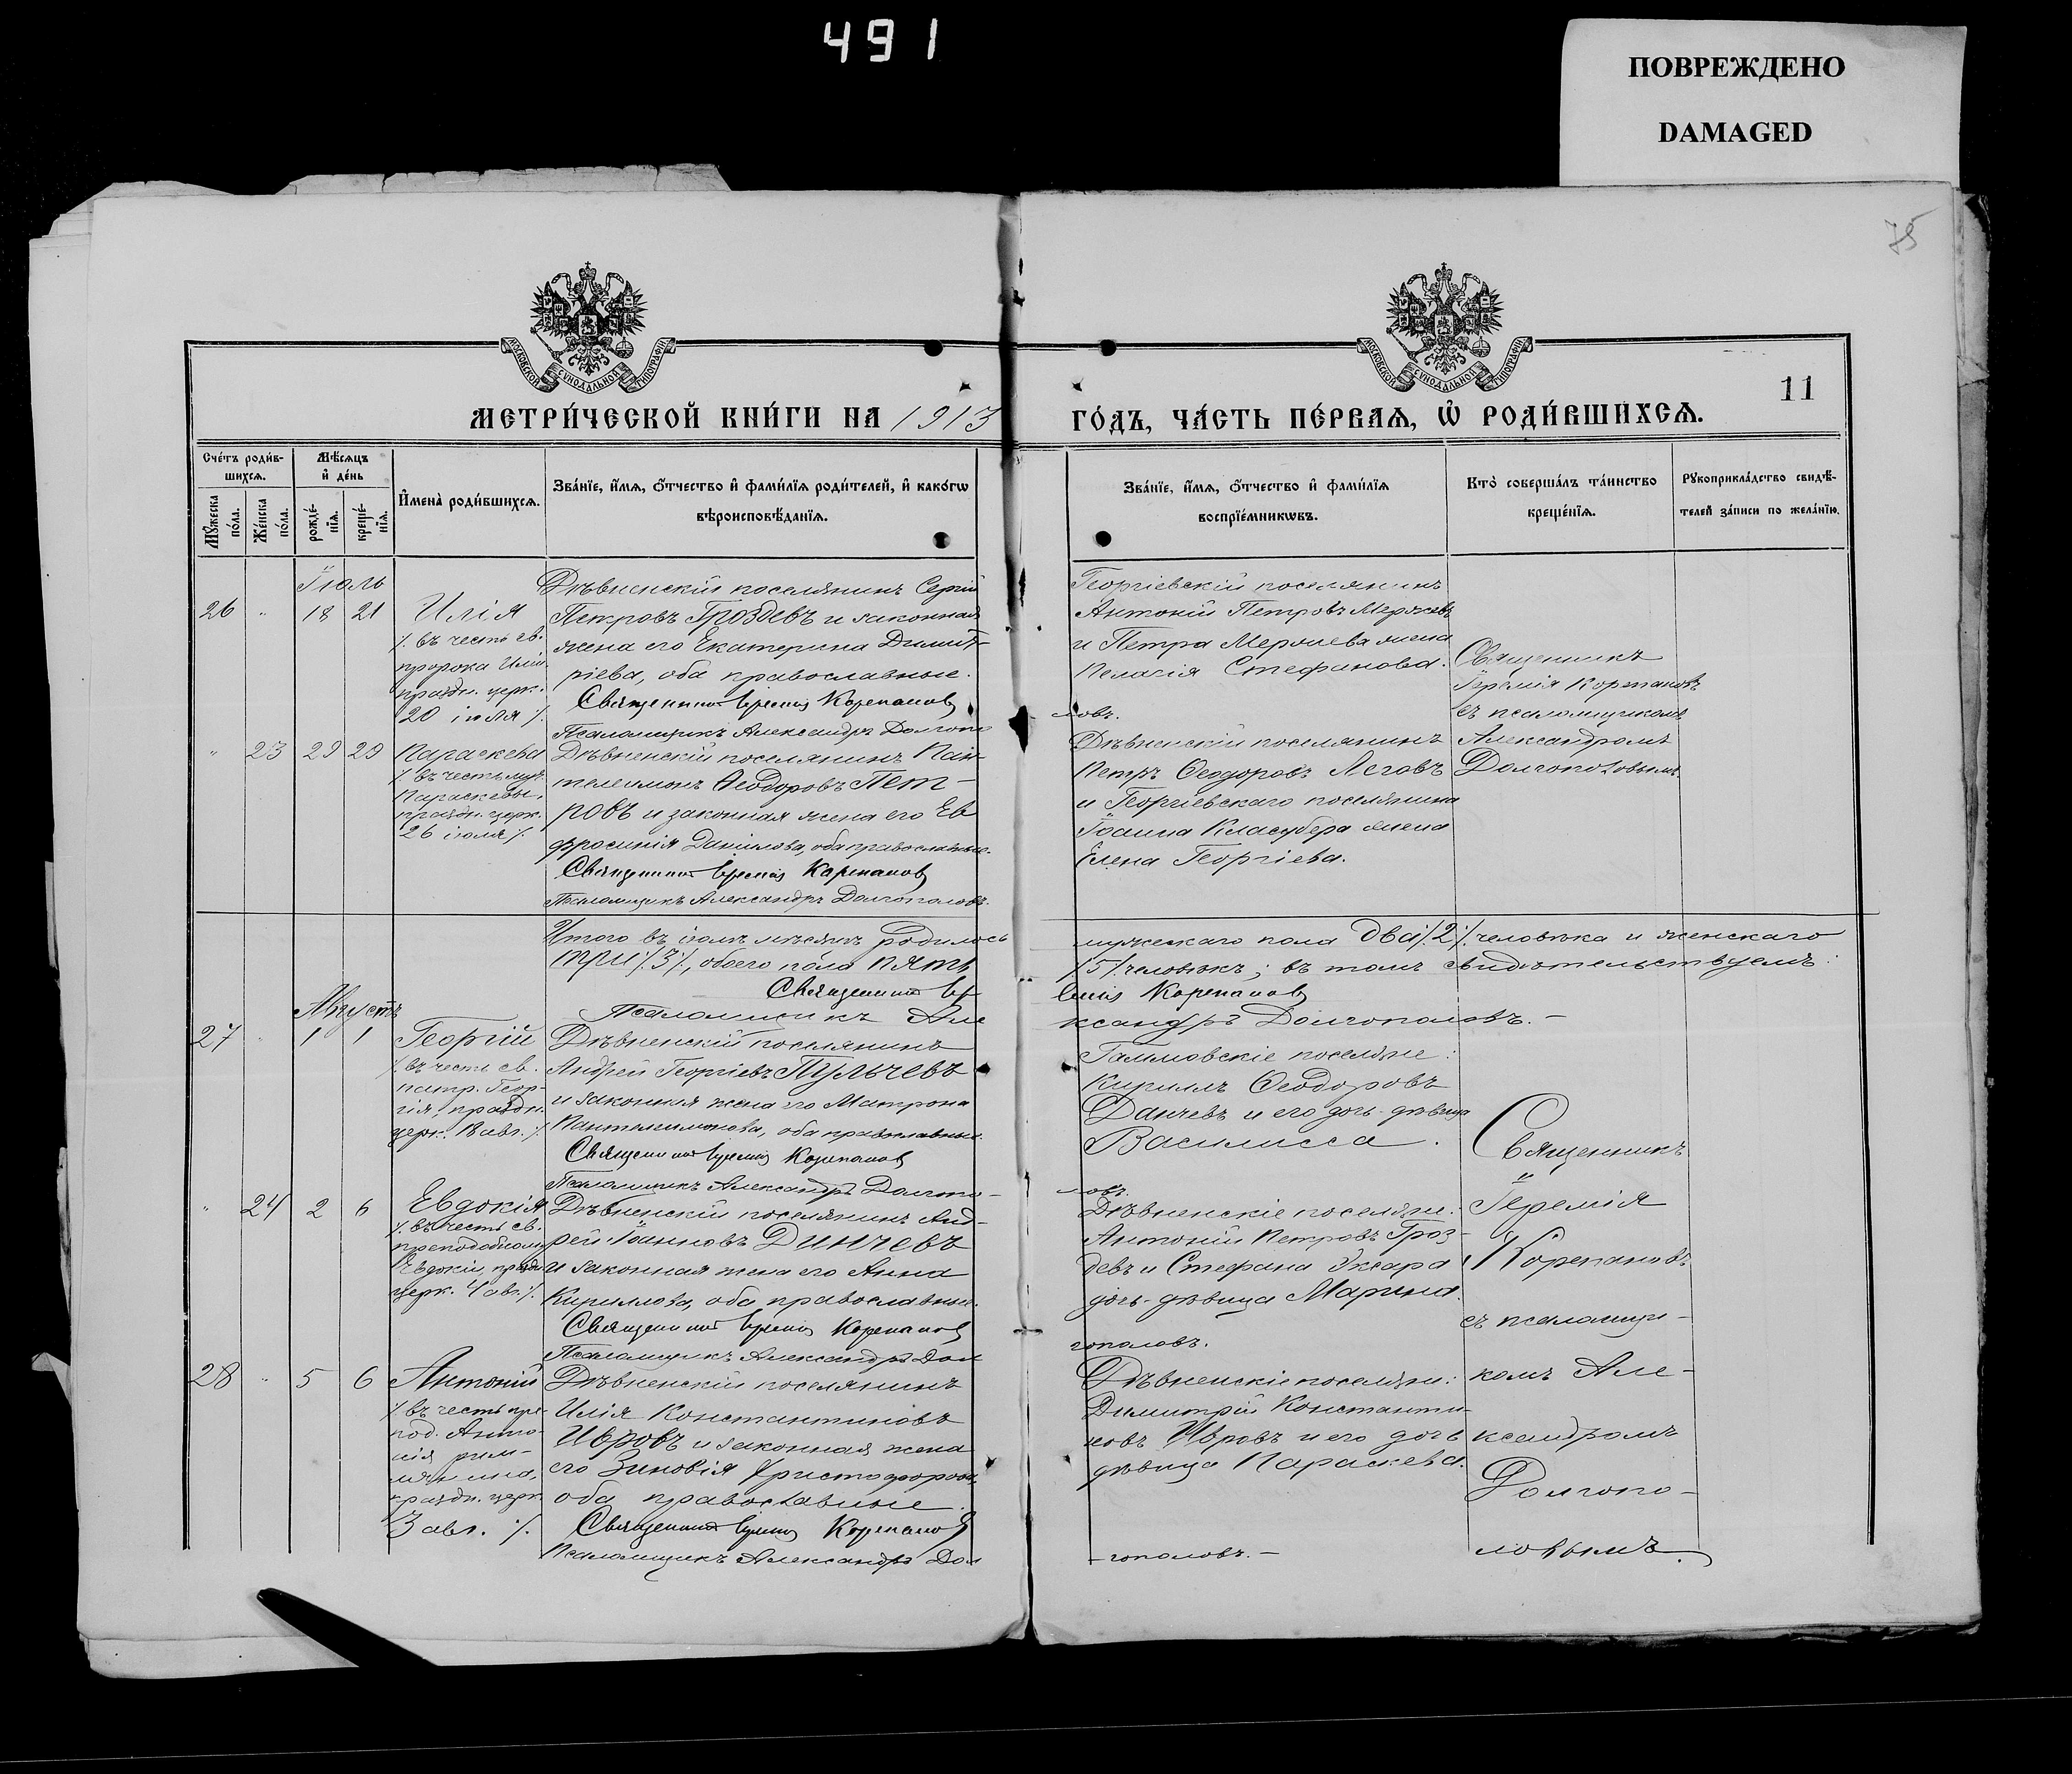 491
ПОВРЕЖДЕНО
DAMAGED
75
МОСКОВСКОЙ СѴНОДАЛЬНОЙ ТИПОГРАФІИ
МОСКОВСКОЙ СѴНОДАЛЬНОЙ ТИПОГРАФІИ
11
МЕТРИ́ЧЕСКОЙ КНИ́ГИ НА 1913
ГО́ДЪ, ЧА́СТЬ ПЕ́РВАѦ, Ѡ҆ РОДИ́ВШИХСѦ.
Сче́тъ роди́в-
шихсѧ.
Мѣ́сѧцъ
и҆ де́нь
Мꙋ́жеска
по́ла.
Же́нска
по́ла.
рожде́-
нїѧ.
креще́-
нїѧ.
И҆мена̀ роди́вшихсѧ.
Зва́нїе, и҆́мѧ, ѻ҆́тчество и҆ фами́лїѧ роди́телей, и҆ како́гѡ
вѣроисповѣ́данїѧ.
Зва́нїе, и҆́мѧ, ѻ҆́тчество и҆ фами́лїѧ
воспрїе́мникѡвъ.
Кто̀ соверша́лъ та́инство
креще́нїѧ.
Рꙋкоприкла́дство свидѣ́-
телей за́писи по жела́нїю.
Іюль
26 " 18 21 Илія
/. въ честь св.
пророка Иліи
праздн. церк.
20 іюля /.
Дѣвненскій поселянинъ Сергій
Петровъ Гроздевъ и законная
жена его Екатерина Димит-
ріева, оба православные.
Священникъ Іеремія Корепановъ
Псаломщикъ Александръ Долгопо
ловъ.
Георгіевскій поселянинъ
Антоній Петровъ
и Петра жена
Пелагія Стефанова.
Священникъ
Іеремія Корепановъ
съ псаломщикомъ
Александромъ
Долгополовымъ.
" 23 29 29 Параскева
/. въ честь муч.
Параскевы,
праздн. церк.
26 іюля /.
Дѣвненскій поселянинъ Пан-
телеимонъ Ѳеодоровъ Пет-
ровъ и законная жена его Ев
фросинія Данилова, оба православные.
Священникъ Іеремія Корепановъ
Псаломщикъ Александръ Долгополовъ.
Дѣвненскій поселянинъ
Петръ Ѳеодоровъ Леговъ
и Георгіевскаго поселянина
Іоанна жена
Елена Георгіева.
Итого въ іюлѣ мѣсяцѣ родилось мужескаго пола два /.2/. человѣка и женскаго
три /.3/., обоего пола пять /5/. человѣкъ; въ томъ свидѣтельствуемъ:
Священникъ Іеремія Корепановъ
Псаломщикъ Александръ Долгополовъ. –
Августъ
27 " 1 1 Георгій
/. въ честь св.
патр. Геор-
гія, праздн.
церк. 18 авг. /.
Дѣвненскій поселянинъ
Андрей Георгіевъ Пульчевъ
и законная жена его Матрона
Пантелеимонова, оба православные.
Священникъ Іеремія Корепановъ
Псаломщикъ Александръ Долгопо-
ловъ.
поселяне:
Кириллъ Ѳеодоровъ
Данчевъ и его дочь-дѣвица
Василисса.
Священникъ
Іеремія
Корепановъ
съ псаломщи-
комъ Але-
ксандромъ
Долгопо-
ловымъ.
" 24 2 6 Евдокія
/. въ честь св.
преподобном.
Евдокіи, праздн.
церк. 4 авг. /.
Дѣвненскій поселянинъ Анд-
рей Іоанновъ Динчевъ
и законная жена его Анна
Кириллова, оба православные.
Священникъ Іеремія Корепановъ
Псаломщикъ Александръ Дол
гополовъ.
Дѣвненскіе поселяне:
Антоній Петровъ Гроз-
девъ и Стефана
дочь-дѣвица Марина.
28 " 5 6 Антоній
/. въ честь пре-
под. Анто-
нія рим-
лянина,
праздн. церк.
3 авг. /.
Дѣвненскій поселянинъ
Илія Константиновъ
Ивровъ и законная жена
его Зиновія Христофорова,
оба православные.
Священникъ Іеремія Корепановъ
Псаломщикъ Александръ Дол
– гополовъ. –
Дѣвненскіе поселяне:
Димитрій Константи-
новъ Ивровъ и его дочь
дѣвица Параскева.